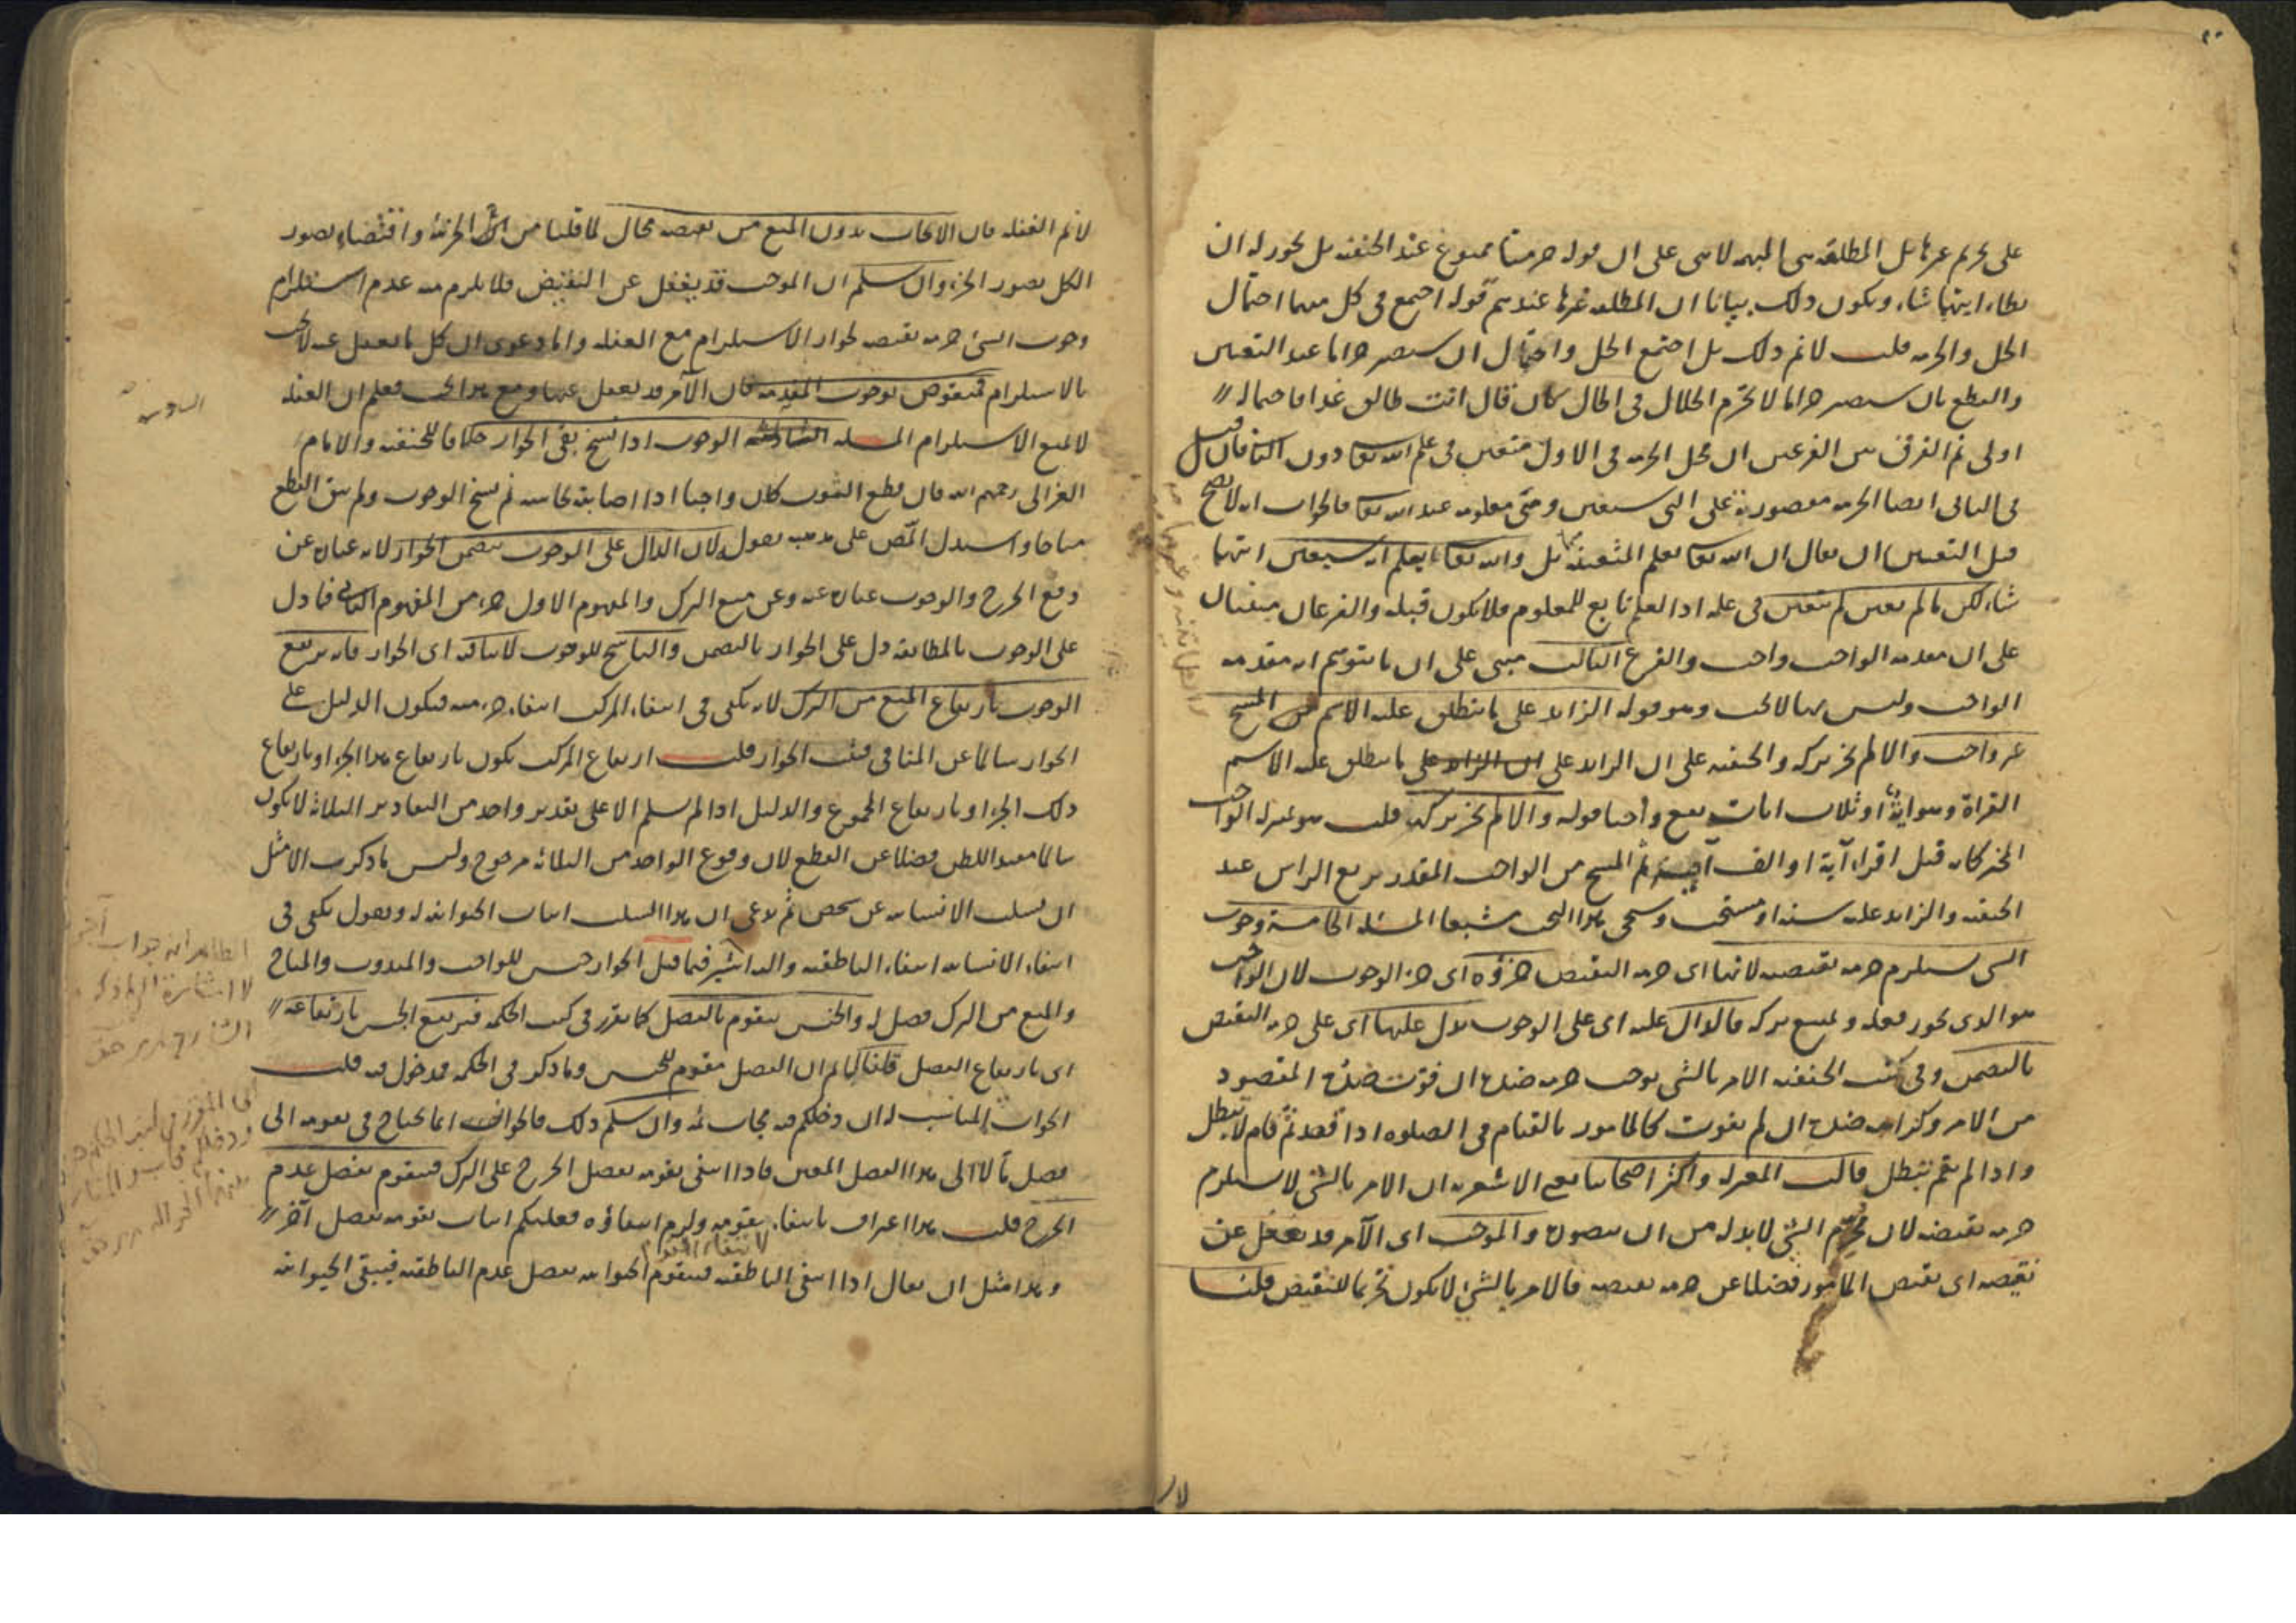 على تحريم غيرها بل المطلقة هي المبهمة لا هي على ان قوله حرمتا ممنوع عند الحنفية بل يجوز له ان
يطاء ايتهما شاء ويكون ذلك بيانا ان المطلقة غيرها عندهم قوله اجتمع في كل منهما احتمال
الحل والحرمة قلت لا نم ذلك بل اجتمع الحل واحتمال ان يستصير حراما عند التعيين
والقطع بان سيصير حراما لا يحرم الحلال في الحال كمن قال انت طالق غدا فاحتماله
اولى ثم الفرق بين الفرعين ان محل الحرمة في الاول متعين في علم الله تعا دون الثاني فان قيل
في الثاني ايضا الحرمة مقصورة على التي ستعين وهي معلومة عند الله تعا فالجواب انه لا يصح
قبل التعيين ان يقال ان الله تعا يعلم المتعينة بل والله تعا يعلم انه سيعين ايتهما
شاء لكن ما لم يعين لم تتعين في علمه اذ العلم تابع للمعلوم فلا يكون قبله والفرعان مبنيان
على ان مقدمة الواجب واجب والفرع الثالث مبني على ان ما يتوهم انه مقدمة
الواجب وليس بها لا يجب وهو قوله الزايد على ما ينطلق عليه الاسم من المسح
غير واجب والا لم يجز تركه والحنفية على ان الزايد على ما ينطلق عليه الاسم
القراة وهو اية او ثلاث ايات يقع واجبا قوله والا لم يجز تركه قلت هو بمنزلة الواجب
المخير كانه قيل اقراء آية او الف آية ثم المسح من الواجب المقدر بربع الراس عند
الحنفية والزايد عليه سنة او مستحب وسيجي هذا البحث مشبعا المسئلة الخامسة وجوب
الشي يستلزم حرمة نقيضه لانها اى حرمة النقيض جزؤه اى جزء الوجوب لان الواجب
هو الذى يجوز فعله ويمتنع تركه فالدال عليه اى على الوجوب يدل عليها اى على حرمة النقيض
بالتضمن وفي كتب الحنفية الامر بالشي يوجب حرمة ضده ان فوت ضده المقصود
من الامر وكراهة ضده ان لم يفوت كالمامور بالقيام في الصلوه اذا قعد ثم قام لا يبطل
واذا لم يقم يبطل قالت المعتزلة واكثر اصحابنا يعني الاشعرية ان الامر بالشي لا يستلزم
حرمة نقيضه لان محرم الشي لا بد له من ان يتصوره والموجب اى الآمر قد يغفل عن
نقيضه اى نقيض المامور فضلا عن حرمة نقيضه فالامر بالشي لا يكون تحريما للنقيض قلنا
لا نم الغفلة فان الايجاب بدون المنع من نقيضه محال لما قلنا من الجزئية واقتضاء تصور
الكل تصور الجزء وان سلم ان الموجب قد يغفل عن النقيض فلا يلزم منه عدم استلزام
وجوب الشئ حرمة نقيضه لجواز الاستلزام مع الغفلة واما دعوى ان كل ما يغفل عنه لا يجب
بالاستلزام فمنقوض بوجوب المقدمة فان الآمر قد يغفل عنها ومع هذا يجب فعلم ان الغفلة
لا تمنع الاستلزام المسئلة السادسة الوجوب اذا نسخ بقي الجواز خلافا للحنفية والامام
الغزالى رحمهم الله فان قطع الثوب كان واجبا اذا اصابته نجاسة ثم نسخ الوجوب ولم يبق القطع
مباحا واستدل المص على مذهبه بقوله لان الدال على الوجوب يتضمن الجواز لانه عبارة عن
رفع الحرج والوجوب عبارة عنه وعن منع الترك والمفهوم الاول جزء من المفهوم الثانى فما دل
على الوجوب بالمطابقة دل على الجواز بالتضمن والناسخ للوجوب لا ينافيه اى الجواز فانه يرتفع
الوجوب بارتفاع المنع من الترك لانه يكفى في انتفاء المركب انتفاء جزء منه فيكون الدليل على
الجواز سالما عن المنافى فيثبت الجواز قلت ارتفاع المركب يكون بارتفاع هذا الجزء او بارتفاع
ذلك الجزء او بارتفاع المجموع والدليل اذا لم يسلم الا على تقدير واحد من التقادير الثلاثة لا يكون
سالما مفيدا للظن فضلا عن القطع لان وقوع الواحد من الثلاثة مرجوح وليس ما ذكرت الا مثل
ان يسلب الانسانية عن شخص ثم يدعى ان هذا السلب اثبات الحيوانية له ويقول يكفى في
انتفاء الانسانية انتفاء الناطقية واليه اشير فيما قيل الجواز جنس للواجب والمندوب والمباح
والمنع من الترك فصل له والجنس يتقوم بالفصل كما تقرر في كتب الحكمة فيرتفع الجنس بارتفاعه
اى بارتفاع الفصل قلنا لا نم ان الفصل مقوم للجنس وما ذكر في الحكمة مدخول فيه قلت
الجواب المناسب له ان دخلكم فيه مجاب ثمة وان سلم ذلك فالجواز انما يحتاج في تقومه الى
فصل ما لا الى هذا الفصل المعين فاذا انتفى تقومه بفصل الحرج على الترك فيتقوم بفصل عدم
الحرج قلت هذا اعتراف بانتفاء تقومه ولزم انتفاؤه فعليكم اثبات تقومه بفصل آخر
لا بقاء التقوم
وهذا مثل ان يقال اذا انتفى الناطقية فيتقوم الحيوانية بفصل عدم الناطقية فيبقى الحيوانية